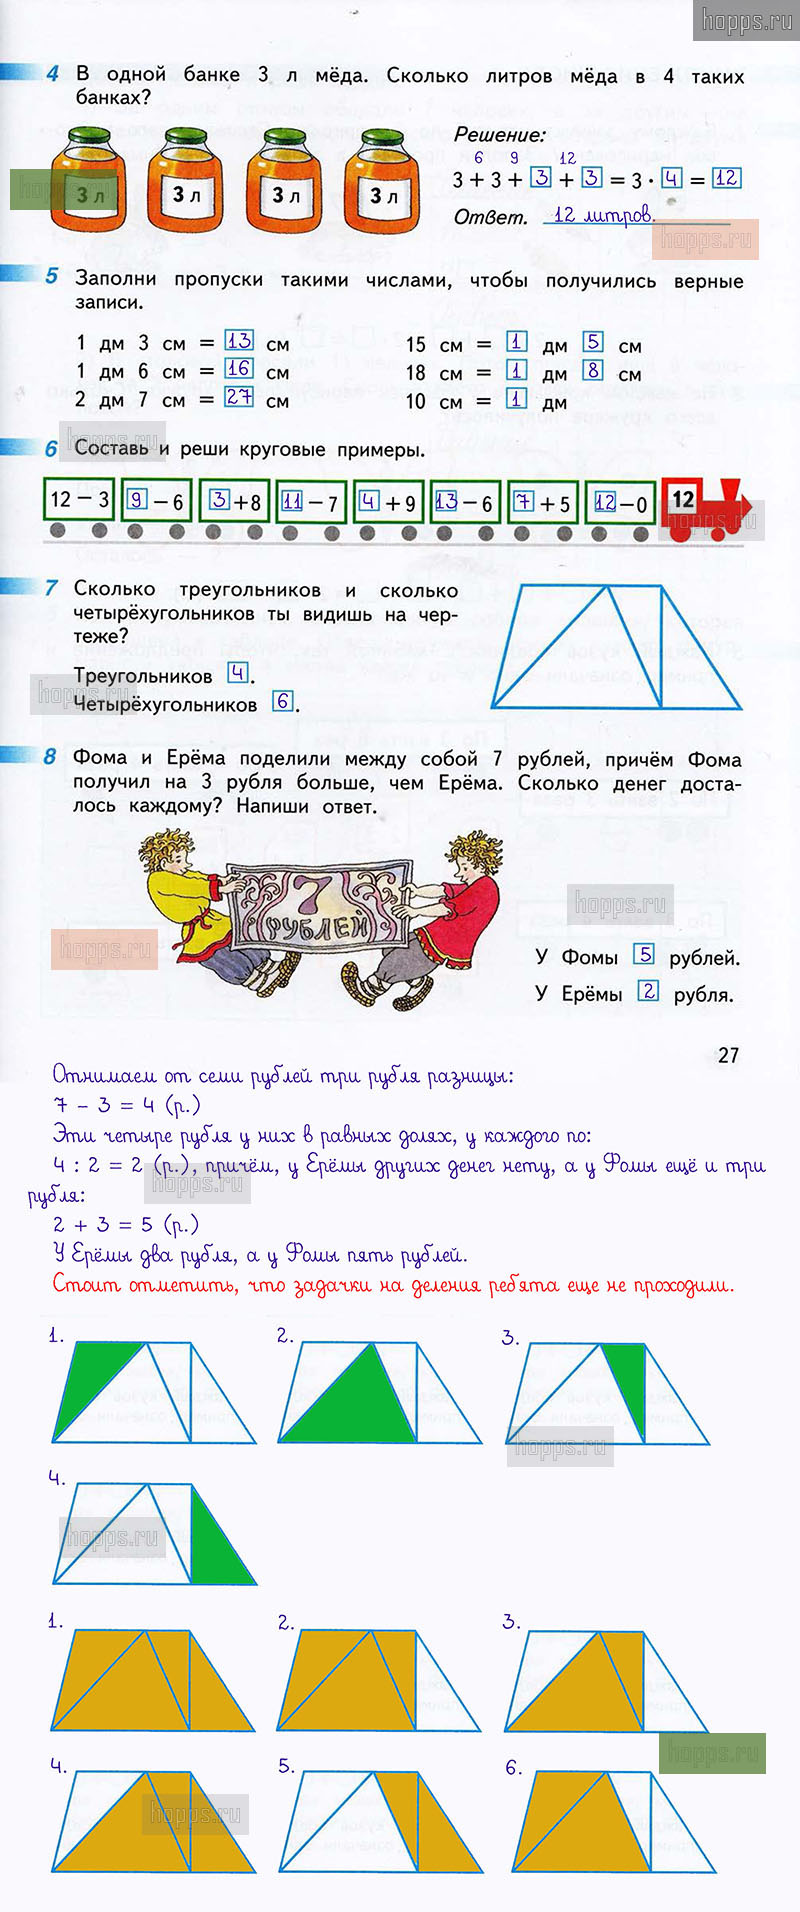 hopps.ru
4 В одной банке 3 л мёда. Сколько литров мёда в 4 таких
банках?
Решение:
6 9 12
3 + 3 + 3 + 3 = 3 · 4 = 12
Ответ. 12 литров.
3 л 3 л 3 л 3 л
hopps.ru
hopps.ru
5 Заполни пропуски такими числами, чтобы получились верные
записи.
1 дм 3 см = 13 см 15 см = 1 дм 5 см
1 дм 6 см = 16 см 18 см = 1 дм 8 см
2 дм 7 см = 27 см 10 см = 1 дм
hopps.ru
6 Составь и реши круговые примеры.
12 − 3 9 − 6 3 + 8 11 − 7 4 + 9 13 − 6 7 + 5 12 − 0 12
hopps.ru
7 Сколько треугольников и сколько
четырёхугольников ты видишь на чер-
теже?
Треугольников 4.
hopps.ru
Четырёхугольников 6.
8 Фома и Ерёма поделили между собой 7 рублей, причём Фома
получил на 3 рубля больше, чем Ерёма. Сколько денег доста-
лось каждому? Напиши ответ.
7
РУБЛЕЙ
hopps.ru
hopps.ru
У Фомы 5 рублей.
У Ерёмы 2 рубля.
27
Отнимаем от семи рублей три рубля разницы:
7 - 3 = 4 (р.)
Эти четыре рубля у них в равных долях, у каждого по:
4 : 2 = 2 (р.), причём, у Ерёмы других денег нету, а у Фомы ещё и три
hopps.ru
рубля:
2 + 3 = 5 (р.)
У Ерёмы два рубля, а у Фомы пять рублей.
Стоит отметить, что задачки на деления ребята еще не проходили.
1. 2. 3.
hopps.ru
4.
hopps.ru
1. 2. 3.
hopps.ru
4. 5. 6.
hopps.ru